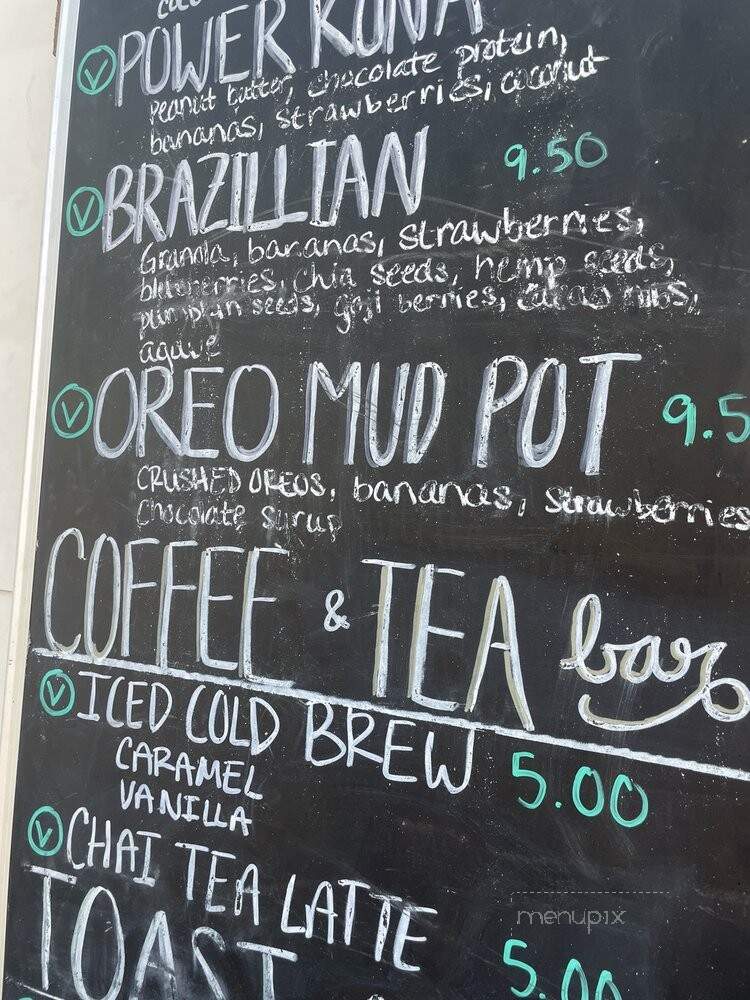 V POWER KONA
Peanut butter, chocolate protein,
bananas, strawberries, coconut
V BRAZILLIAN 9.50
Granola, bananas, strawberries,
blueberries, chia seeds, hemp seeds,
pumpkin seeds, goji berries, cacao nibs,
agave
V OREO MUD POT 9.5
CRUSHED OREOS, bananas, strawberries
Chocolate syrup
COFFEE & TEA bar
V ICED COLD BREW 5.00
CARAMEL
VANILLA
V CHAI TEA LATTE 5.00
TOAST
menupix